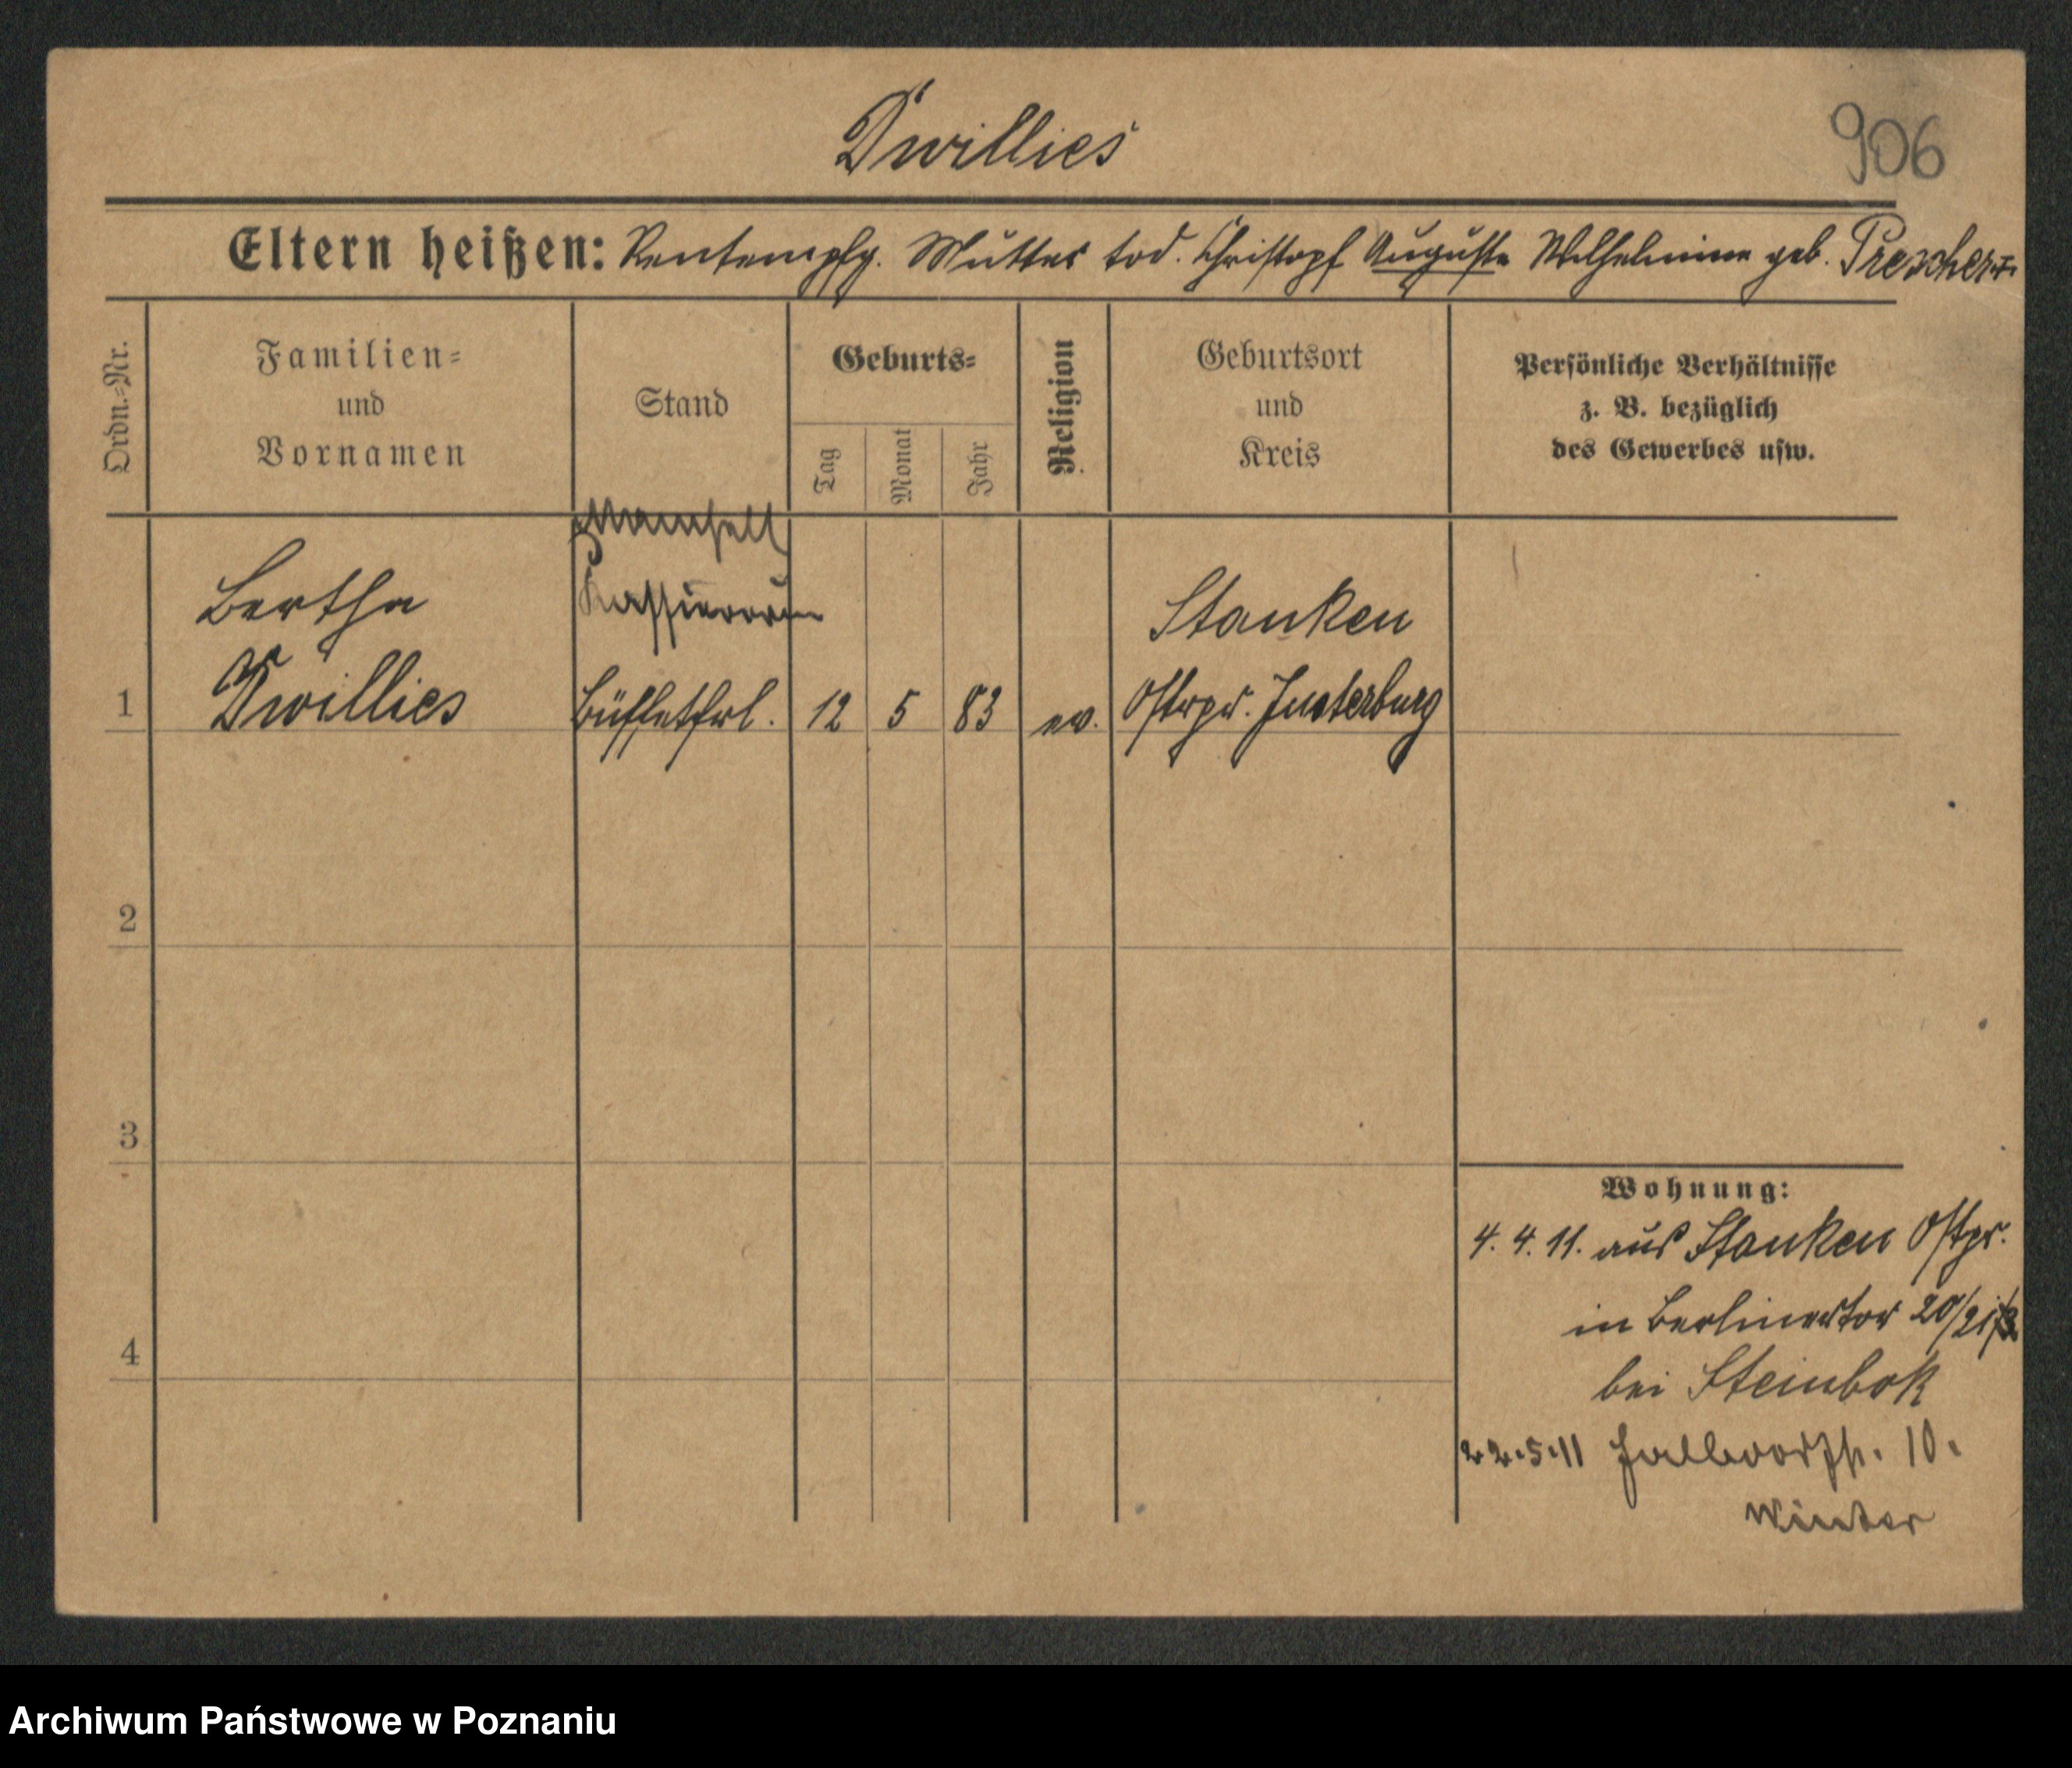 Dwillies
906
Eltern heißen: Rentempfg. Mutter tod. Christopf Auguste Wilhelmine geb. Prescher
Ordn.=Nr.
Familien=
und
Vornamen
Stand
Geburts=
Tag
Monat
Jahr
Religion
Geburtsort
und
Kreis
Persönliche Verhältnisse
z. B. bezüglich
des Gewerbes usw.
Mamsell
Kassiererin
Bertha
Stanken
1 Dwillies Büffetfrl. 12 5 83 ev. Ostpr. Insterburg
2
3
4
Wohnung:
4. 4. 11. aus Stanken Ostpr.
in Berlinertor 20/21
bei Steinbok
22.5.11 10.
Winter
Archiwum Państwowe w Poznaniu